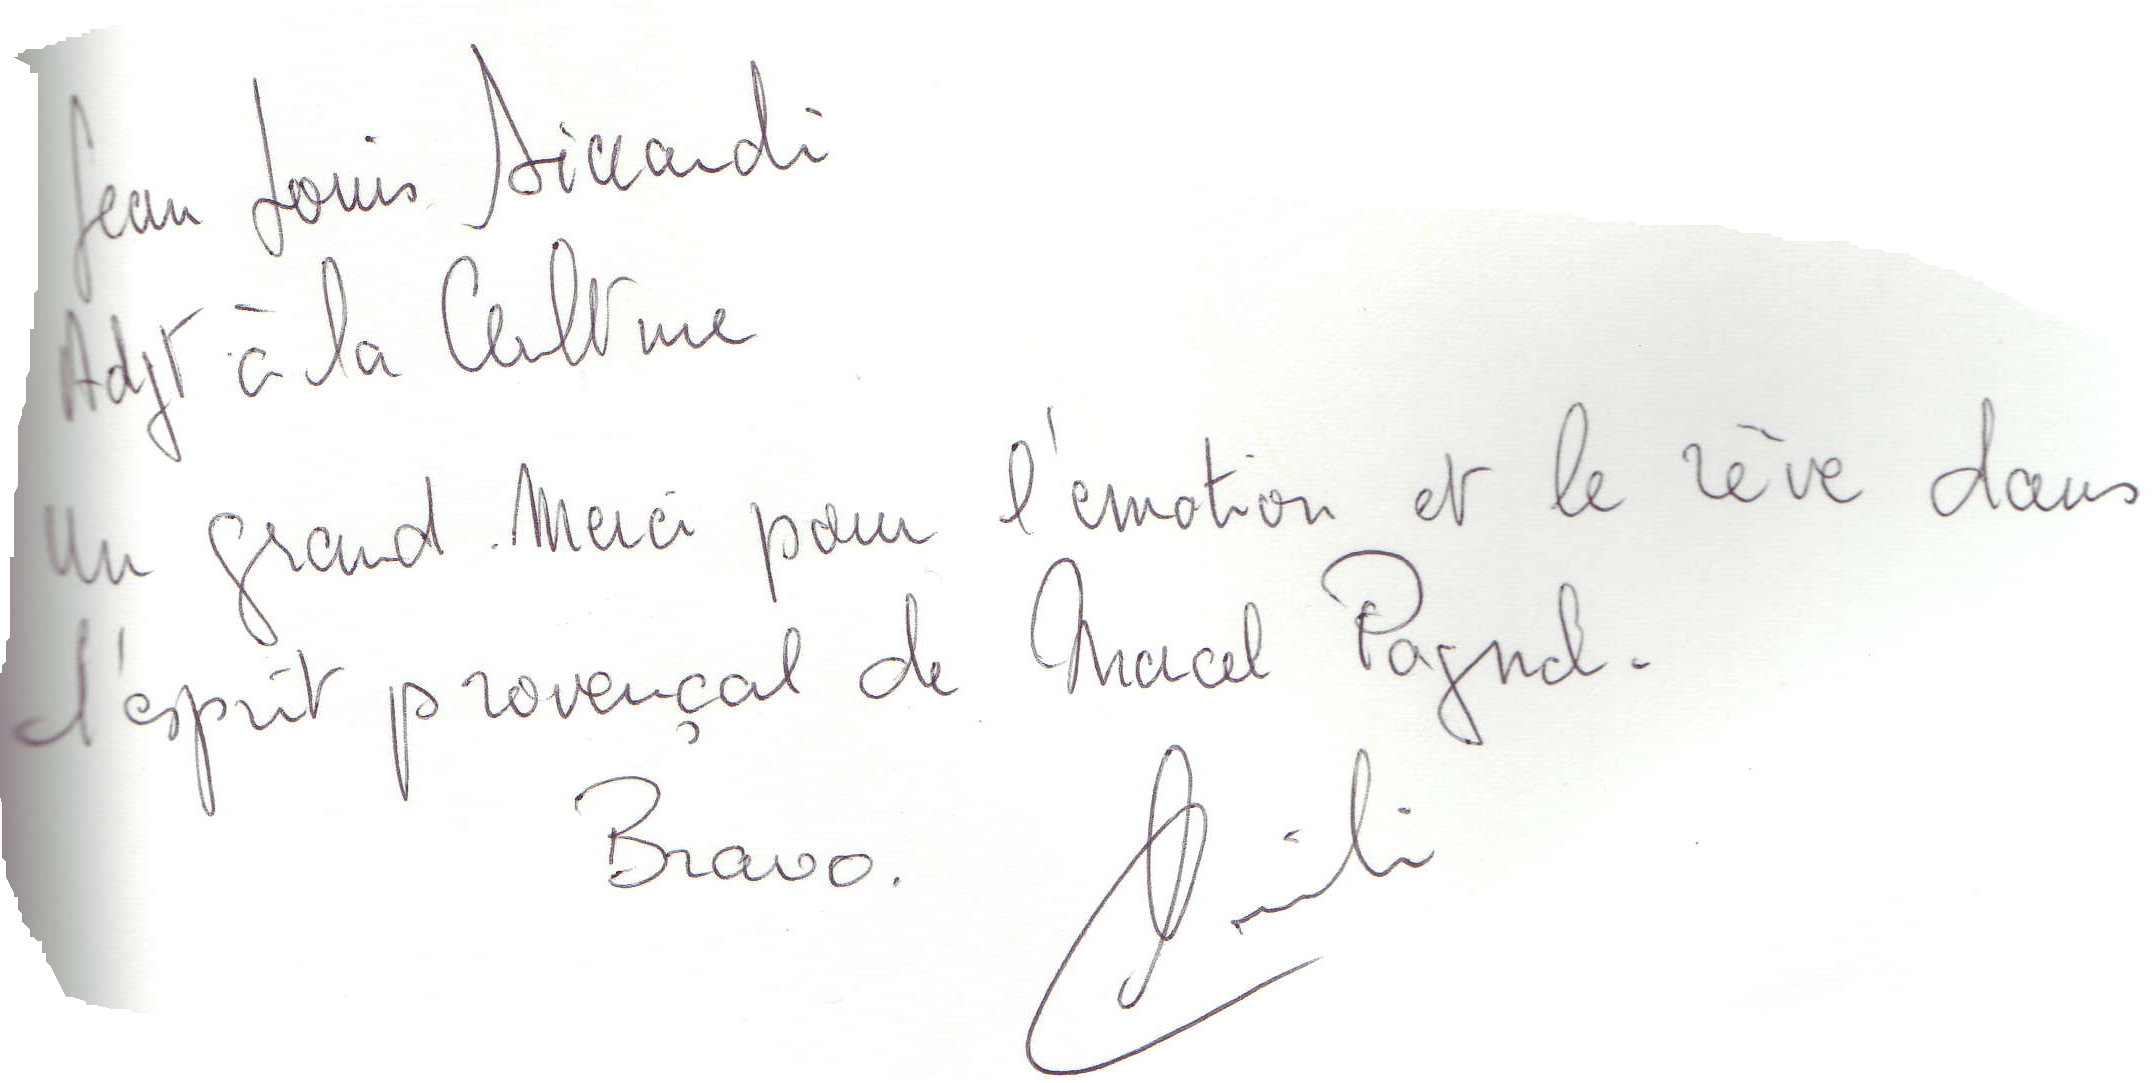 Jean Louis Siccardi
Adjt à la Culture
Un grand Merci pour l'émotion et le rêve dans
l'esprit provençal de Marcel Pagnol.
Bravo.